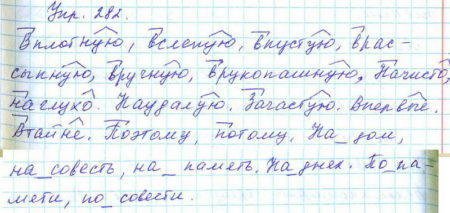 Упр. 282.
Вплотную, вслепую, впустую, врас-
сыпную, вручную, врукопашную, Начисто,
наглухо. Наудалую. Зачастую. Впервые.
Втайне. Поэтому, потому. На_дом,
на_совесть, на_память. На_днях. По_па-
мяти, по_совести.